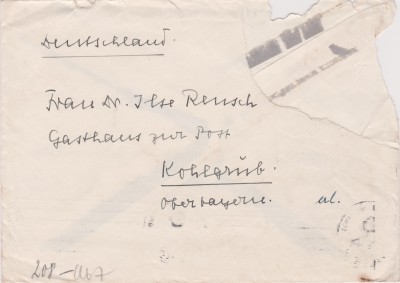 Deutschland.
Frau Dr. Ilse Rensch
Gasthaus zur Post
Kohlgrub.
Oberbayern.